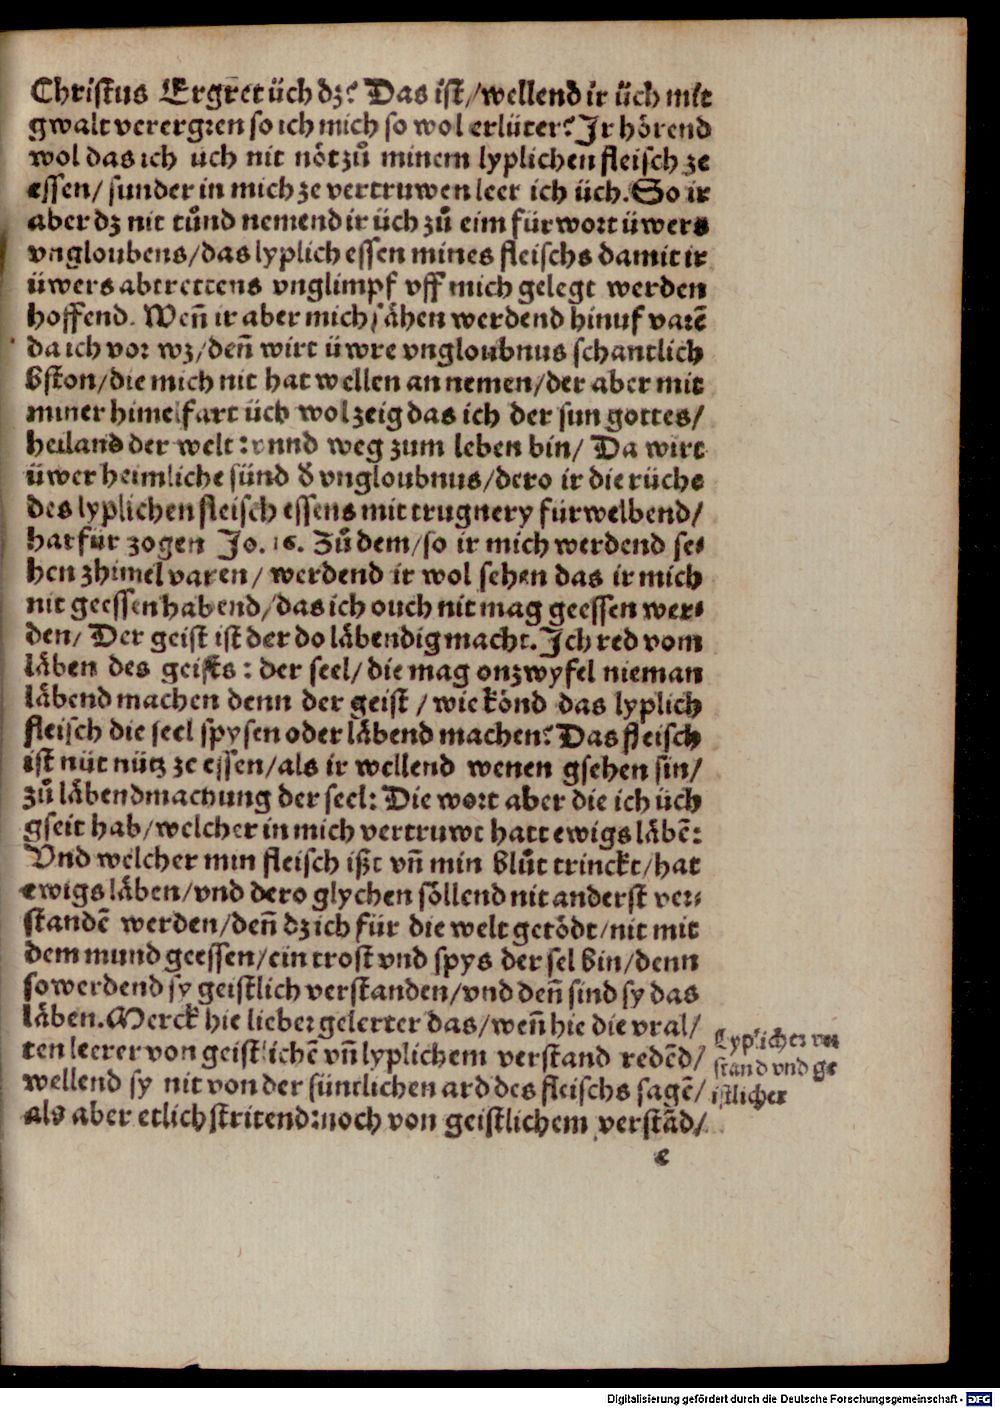 Christus Ergret üch dz? Das ist/wellend ir üch mit
gwalt verergren so ich mich so wol erlüter? Ir hörend
wol das ich üch nit nötzů minem lyplichen fleisch ze
essen/ sunder in mich ze vertruwen leer ich üch. So ir
aber dz nit tůnd nemend ir üch zů eim fürwort üwers
vngloubens/das lyplich essen mines fleischs damit ir
üwers abtrettens vnglimpf vff mich gelegt werden
hoffend. Weñ ir aber mich sähen werdend hinuf varē
da ich vor wz/deñ wirt üwre vngloubnus schantlich
bston/die mich nit hat wellen an nemen/der aber mit
miner himelfart üch wol zeig das ich der sun gottes/
heiland der welt: vnnd weg zum leben bin/ Da wirt
üwer heimliche sünd d̕ vngloubnus/dero ir die rüche
des lyplichen fleisch essens mit trugnery fürwelbend/
harfür zogen Jo. 16. Zů dem/so ir mich werdend se⸗
hen zhimel varen/ werdend ir wol sehen das ir mich
nit geessen habend/das ich ouch nit mag geessen wer⸗
den/ Der geist ist der do läbendig macht. Ich red vom
läben des geists: der seel/ die mag onzwyfel nieman
läbend machen denn der geist / wie könd das lyplich
fleisch die seel spysen oder läbend machen? Das fleisch
ist nüt nütz ze essen/als ir wellend wenen gsehen sin/
zů läbendmachung der seel: Die wort aber die ich üch
gseit hab/welcher in mich vertruwt hatt ewigs läbē:
Vnd welcher min fleisch ißt vñ min blůt trinckt/hat
ewigs läben/vnd dero glychen söllend nit anderst ver⸗
standē werden/deñ dz ich für die welt getödt/nit mit
dem mund geessen/ein trost vnd spys der sel bin/denn
so werdend sy geistlich verstanden/vnd deñ sind sy das
läben. Merck hie lieber gelerter das/weñ hie die vral/
ten leerer von geistlichē vñ lyplichem verstand redēd/
wellend sy nit von der süntlichen ard des fleischs sagē/
als aber etlich stritend: noch von geistlichem verstād/
Lyplicher ver
stand vnd ge
istlicher
e
Digitalisierung gefördert durch die Deutsche Forschungsgemeinschaft - DFG